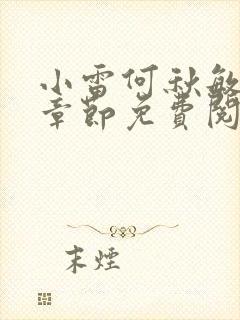 小雷何秋敏
章節免費閱
末煙